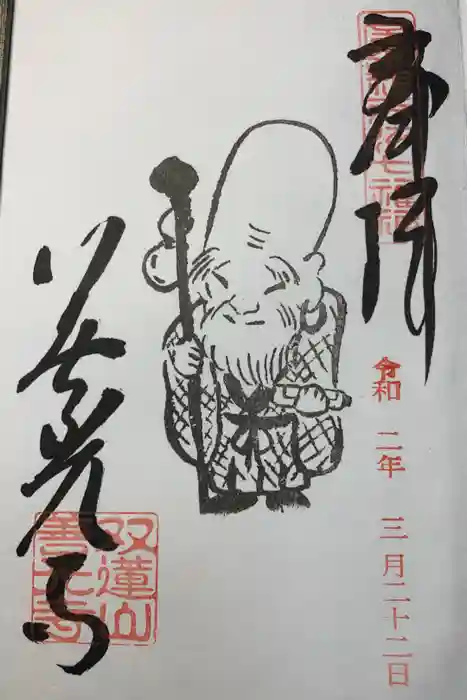 奉拝
令和 二年 三月二十二日
善光寺
双蓮山
善光寺